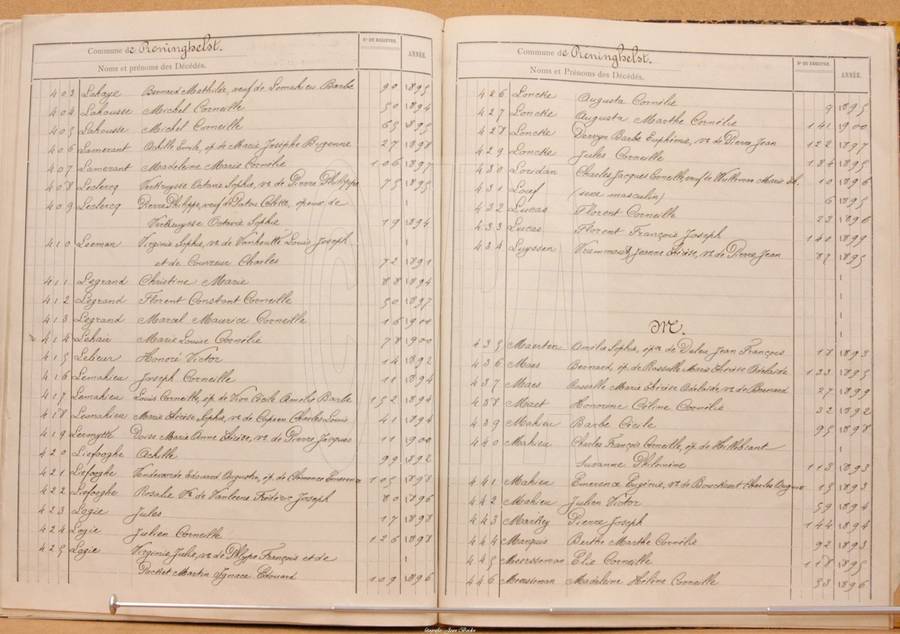 Commune de Reninghelst.
Nº DE REGISTRE.
ANNÉE.
Noms et prénoms des Décédés.
403 Lahaye Bernard Mathilde, veuf de Lemahieu Barbe 90 1895
404 Lahousse Michel Corneille 50 1894
405 Lahousse Michel Corneille 65 1895
406 Lamerant Achille Emile, ép. de Marie Josèphe 27 1898
407 Lamerant Madeleine Marie Cornélie 106 1897
408 Leclercq Verkruysse Octavie Sophie, ve de Pierre Philippe 75 1895
409 Leclercq Pierre Philippe, veuf de Colette, époux de
Verkruysse Octavie Sophie 19 1894
410 Leeman Virginie Sophie, ve de Louis Joseph
et de Couvreur Charles 72 1891
411 Legrand Christine Marie 88 1894
412 Legrand Florent Constant Corneille 50 1897
413 Legrand Marcel Maurice Corneille 16 1900
414 Lehaie Marie Louise Cornélie 78 1900
415 Lelieur Honoré Victor 14 1892
416 Lemahieu Joseph Corneille 11 1894
417 Lemahieu Louis Corneille, ép. de Cécile Amélie Barbe 152 1894
418 Lemahieu Marie Thérèse Sophie, ve de Charles Louis 41 1894
419 Lermytte Marie Anne Thérèse, ve de Pierre Jacques 11 1900
420 Liefooghe Achille 99 1892
421 Liefooghe Edouard Auguste, ép. de Clémence 105 1898
422 Liefooghe Rosalie Ve de Fréderic Joseph 80 1896
423 Logie Jules 17 1898
424 Logie Julien Corneille 126 1898
425 Logie Virginie Julie, ve de Phlypo François et de
Martin Ignace Edouard 109 1896
Commune de Reninghelst.
Nº DE REGISTRE.
ANNÉE.
Noms et Prénoms des Décédés.
426 Loncke Augusta Cornélie 9 1895
427 Loncke Augusta Marthe Cornélie 141 1900
428 Loncke Barbe Euphémie, ve de Pierre Jean 122 1897
429 Loncke Jules Corneille 184 1895
430 Loridan Charles Jacques Corneille, veuf de Marie 10 1896
431 Loüf (sexe masculin) 6 1895
432 Lucas Florent Corneille 23 1896
433 Lucas Florent François Joseph 140 1899
434 Luyssen Jeanne Thérèse, ve de Pierre Jean 87 1895
M.
435 Maerten Amélie Sophie, ép. de Jean François 18 1893
436 Maes Bernard, ép. de Rosselle Marie Thérèse Adélaïde 123 1895
437 Maes Rosselle Marie Thérèse Adélaïde, ve de Bernard 27 1899
438 Maes Honorine Céline Cornélie 32 1892
439 Mahieu Barbe Cécile 95 1898
440 Mahieu Charles François Corneille, ép. de
Suzanne Philomène 113 1893
441 Mahieu Emerence Eugénie, ve de Bouckaert Charles 15 1893
442 Mahieu Julien Victor 59 1894
443 Pierre Joseph 144 1894
444 Marquis Berthe Marthe Cornélie 92 1893
445 Meersseman Elie Corneille 118 1895
446 Meersseman Madeleine Hélène Corneille 53 1896